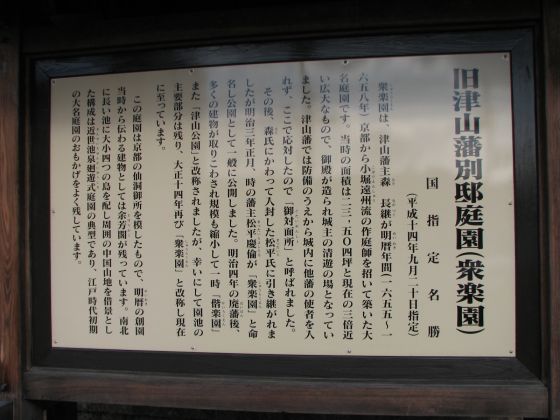 旧津山藩別邸庭園(衆楽園)
国指定名勝
(平成十四年九月二十日指定)
衆楽園は、津山藩主森 長継が明暦年間(一六五五〜一
六五八年)京都から小堀遠州流の作庭師を招いて築いた大
名庭園です。当時の面積は二三・五〇四坪と現在の三倍近
い広大なもので、御殿が造られ城主の清遊の場となってい
ました。津山藩では防備のうえから城内に他藩の使者を入
れず、ここで応対したので「御対面所」と呼ばれました。
その後、森氏にかわって入封した松平氏に引き継がれま
したが明治三年正月、時の藩主松平慶倫が「衆楽園」と命
名し公園として一般に公開しました。明治四年の廃藩後、
多くの建物が取りこわされ規模も縮小して一時「偕楽園」
また「津山公園」と改称されましたが、幸いにして園池の
主要部分は残り、大正十四年再び「衆楽園」と改称し現在
に至っています。
この庭園は京都の仙洞御所を模したもので、明暦の創園
当時から伝わる建物としては余芳閣が残っています。南北
に長い池に大小四つの島を配し周囲の中国山地を借景とし
た構成は近世池泉廻遊式庭園の典型であり、江戸時代初期
の大名庭園のおもかげをよく残しています。